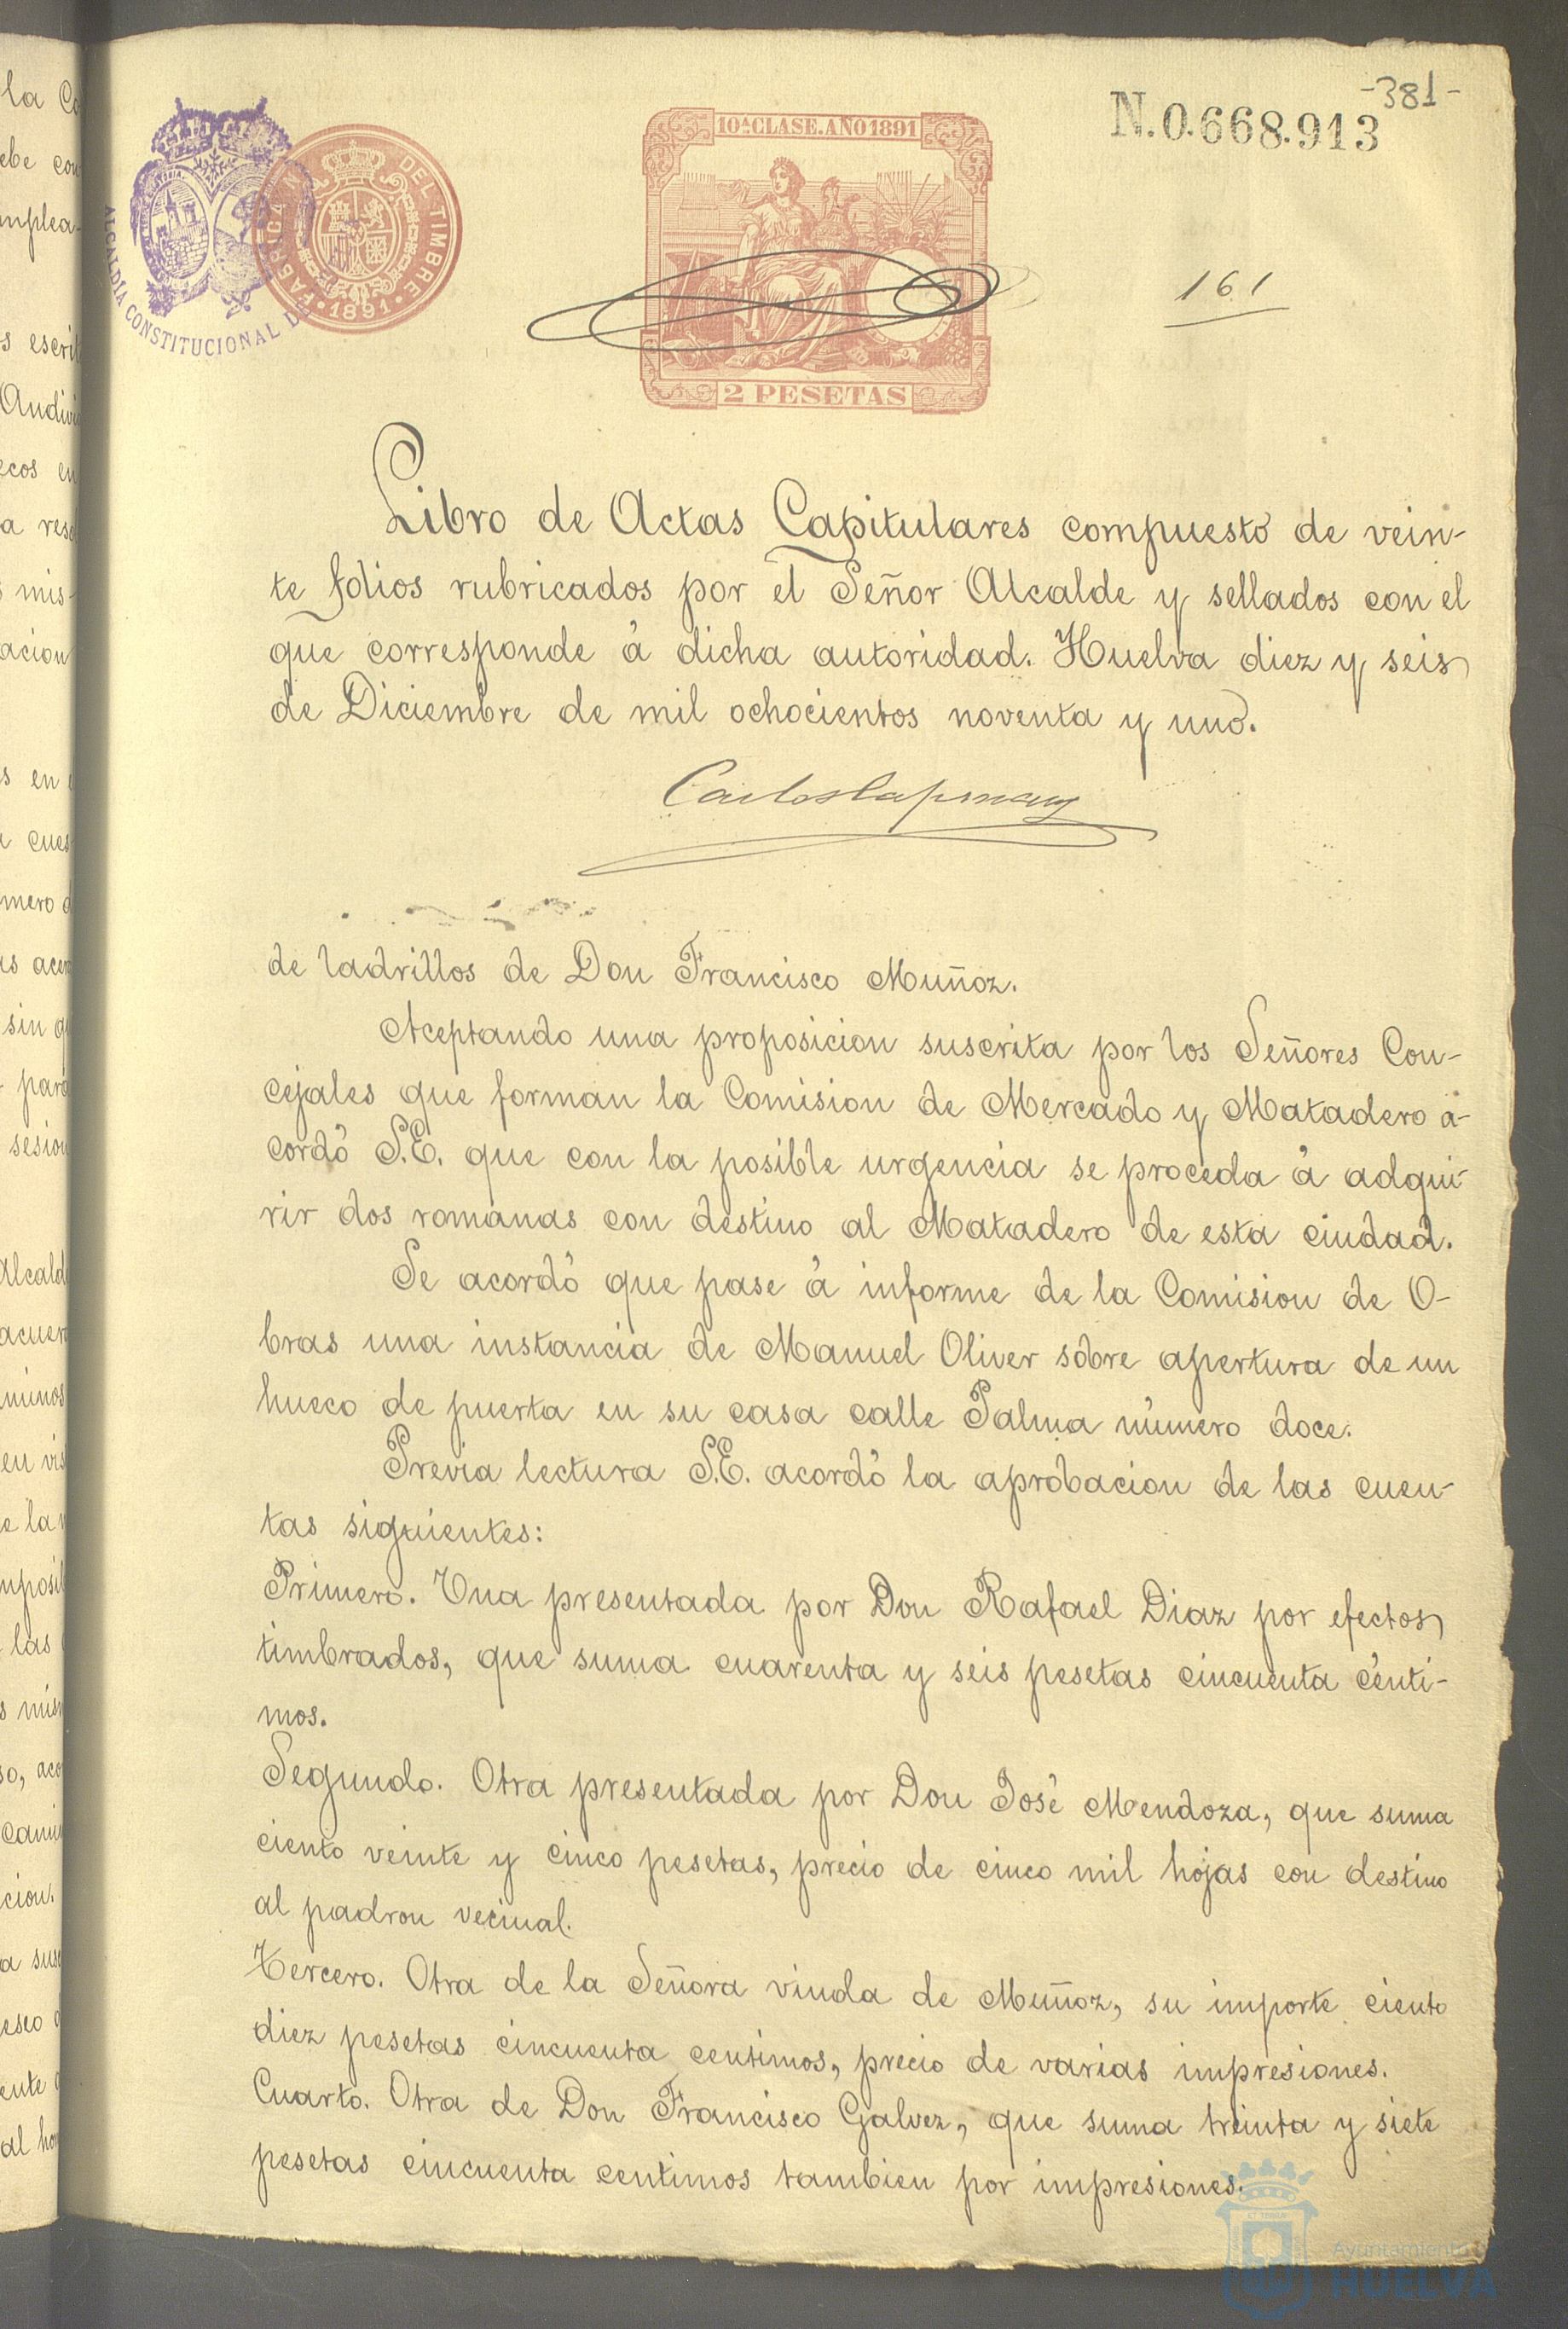 -381-
N.0.668.913
10ª CLASE. AÑO 1891
ALCALDÍA CONSTITUCIONAL DE
FABRICA N DEL TIMBRE
1891
161
2 PESETAS
Libro de Actas Capitulares compuesto de vein-
te folios rubricados por el Señor Alcalde y sellados con el
que corresponde á dicha autoridad. Huelva diez y seis
de Diciembre de mil ochocientos noventa y uno.
Carlos Capmany
de ladrillos de Don Francisco Muñoz.
Aceptando una proposicion suscrita por los Señores Con-
cejales que forman la Comision de Mercado y Matadero a-
cordó S.E. que con la posible urgencia se proceda á adqui-
rir dos romanas con destino al Matadero de esta ciudad.
Se acordó que pase á informe de la Comision de O-
bras una instancia de Manuel Oliver sobre apertura de un
hueco de puerta en su casa calle Palma número doce.
Previa lectura S.E. acordó la aprobacion de las cuen-
tas siguientes:
Primero. Una presentada por Don Rafael Diaz por efectos
timbrados, que suma cuarenta y seis pesetas cincuenta cénti-
mos.
Segundo. Otra presentada por Don José Mendoza, que suma
ciento veinte y cinco pesetas, precio de cinco mil hojas con destino
al padron vecinal.
Tercero. Otra de la Señora viuda de Muñoz, su importe ciento
diez pesetas cincuenta centimos, precio de varias impresiones.
Cuarto. Otra de Don Francisco Galvez, que suma treinta y siete
pesetas cincuenta centimos tambien por impresiones.
Ayuntamiento
HUELVA